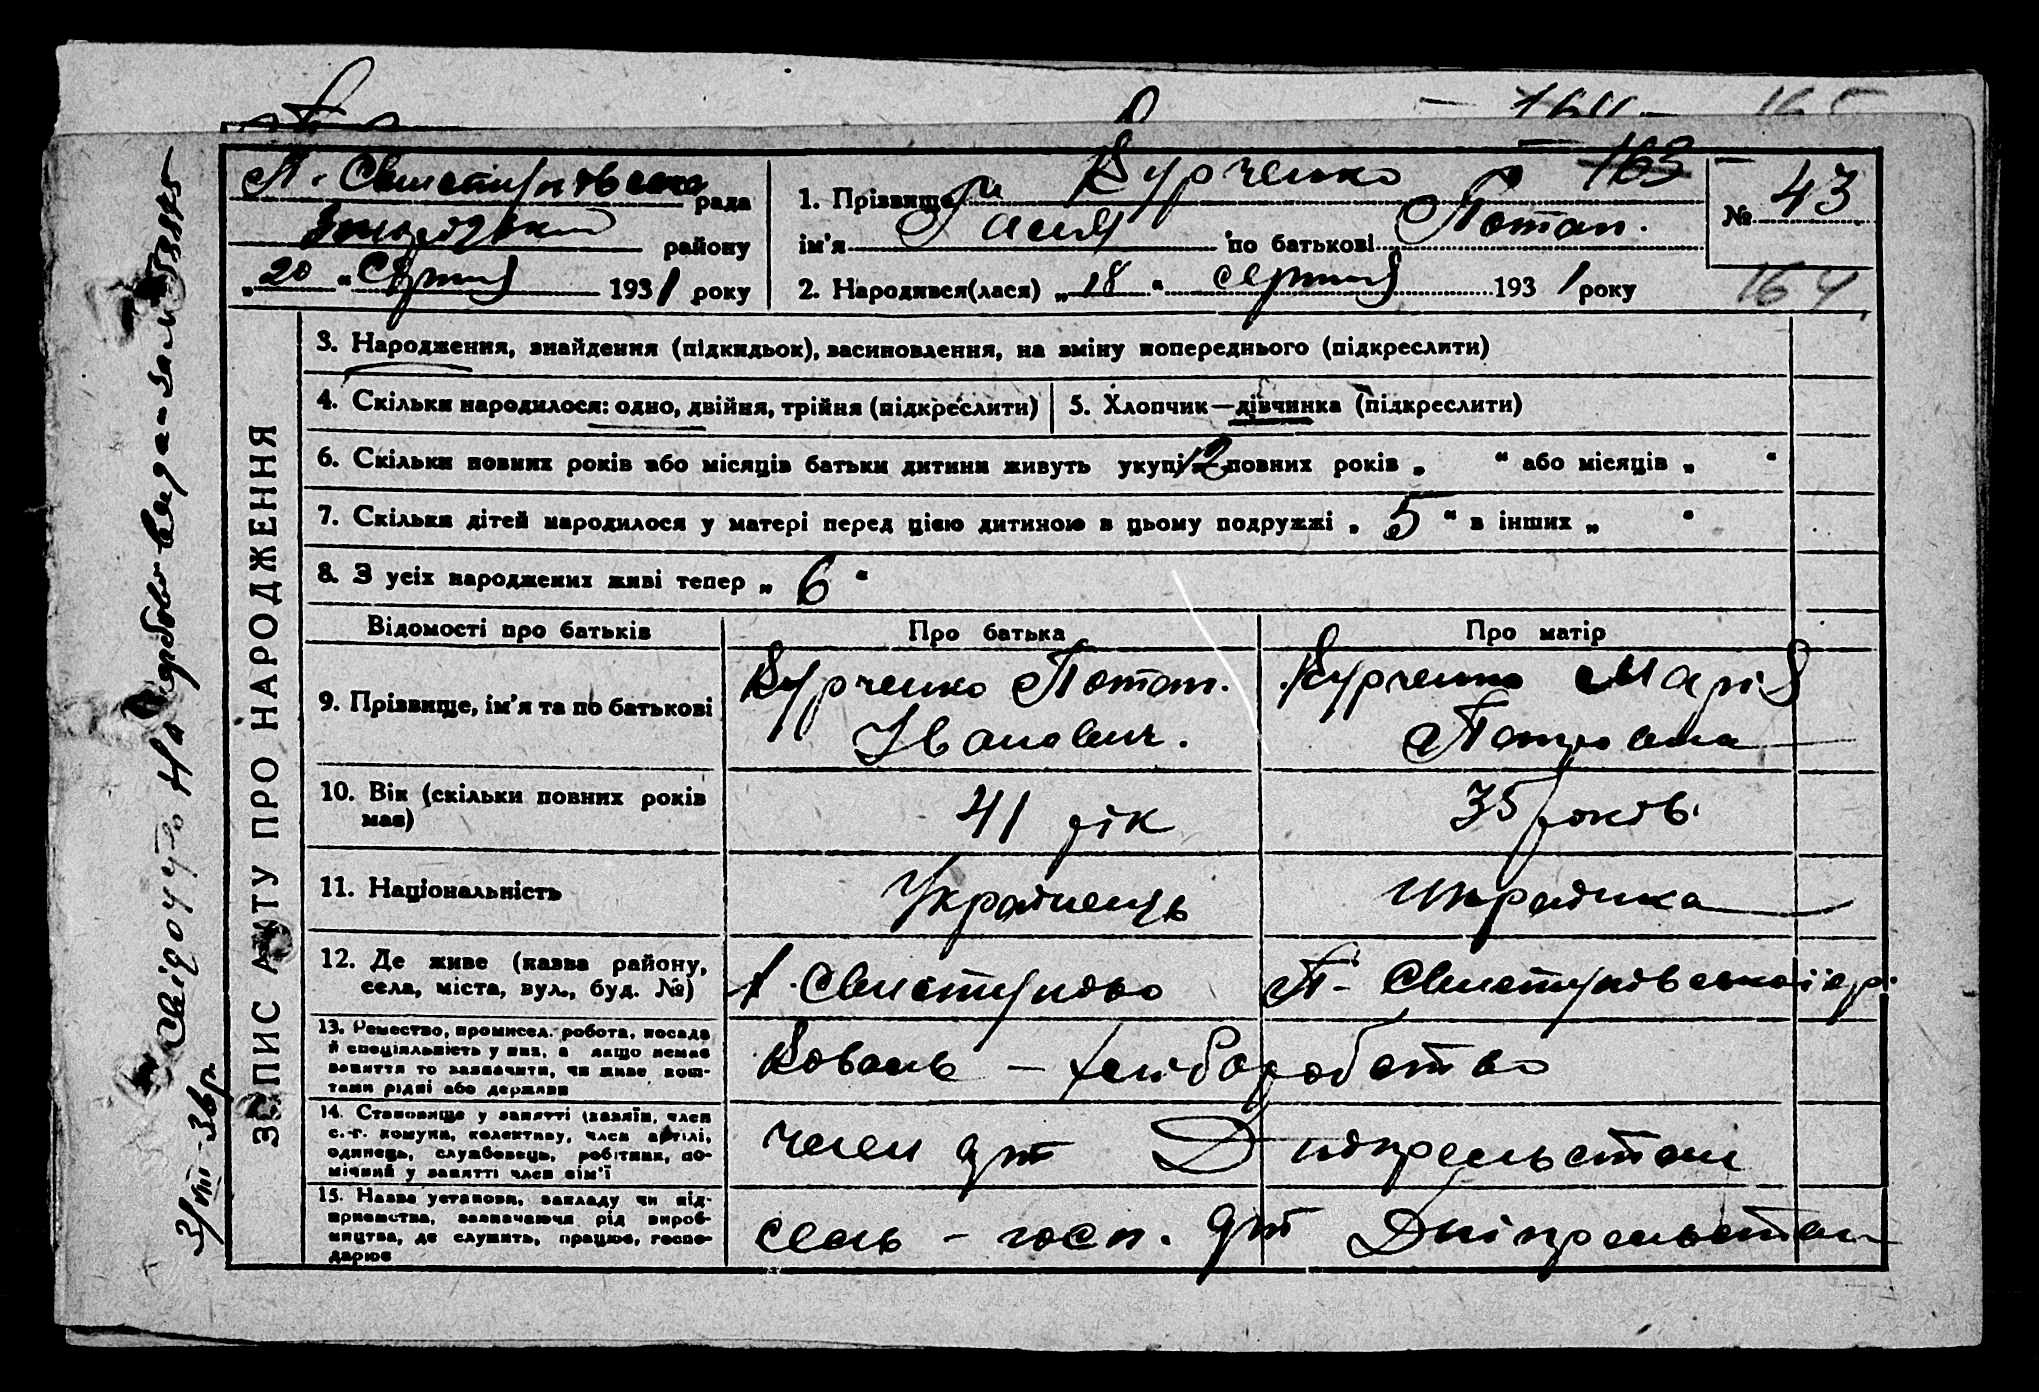 164 165
П. Свистунівська рада
району
„20“ Серпня 1931 року
1. Прізвище Курченко 163
ім'я Гася по батькові Потап.
2. Народився(лася) „18“ серпня 1931 року
№ 43
164
ЗАПИС АКТУ ПРО НАРОДЖЕННЯ
3. Народження, знайдення (підкидьок), засиновлення, на зміну попереднього (підкреслити)
4. Скільки народилося: одно, двійня, трійня (підкреслити)
5. Хлопчик—дівчинка (підкреслити)
6. Скільки повних років або місяців батьки дитини живуть укупі 12 повних років „ “ або місяців „ “
7. Скільки дітей народилося у матері перед цією дитиною в цьому подружжі „ 5 “ в інших „ “
8. З усіх народжених живі тепер „ 6 “
Відомості про батьків
Про батька
Про матір
9. Прізвище, ім'я та по батькові
Курченко Потап.
Іванович.
Курченко Марія
Петровна
10. Вік (скільки повних років має)
41 рік
35 років
11. Національність
Українець
Українка
12. Де живе (назва району,
села, міста, вул., буд. №)
П. Свистуново
П- Свистунівської с.р.
13. Ремество, промисел. робота, посада
й спеціяльність у них, а якщо немає
заняття то зазначити, чи живе кош-
тами рідні або держави
Коваль – хліборобство
14. Становище у занятті (хазяїн, член
с.-г. комуни, колективу, член артілі,
одинець, службовець, робітник, по-
мічний у занятті член сім'ї
член арт Дніпрельстан
15. Назва установи, закладу чи під-
приємства, зазначаючи рід вироб-
ництва, де служить, працює, госпо-
дарює
сель – госп. арт Дніпрельстан
3/VIII-36р.